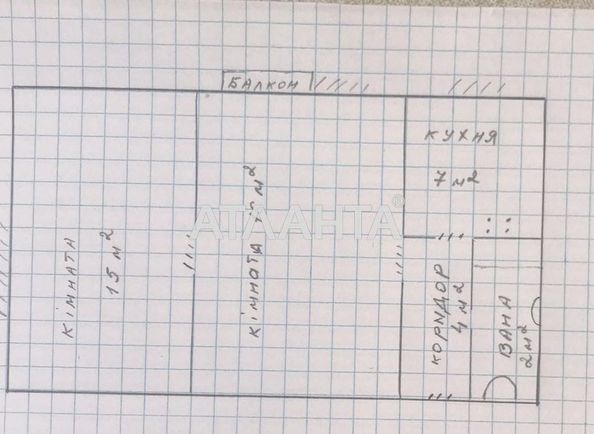 БАЛКОН
КІМНАТА
15 м²
КІМНАТА м²
КУХНЯ
7 м²
КОРИДОР
4 м²
ВАНА
2 м²
АТЛАНТА®